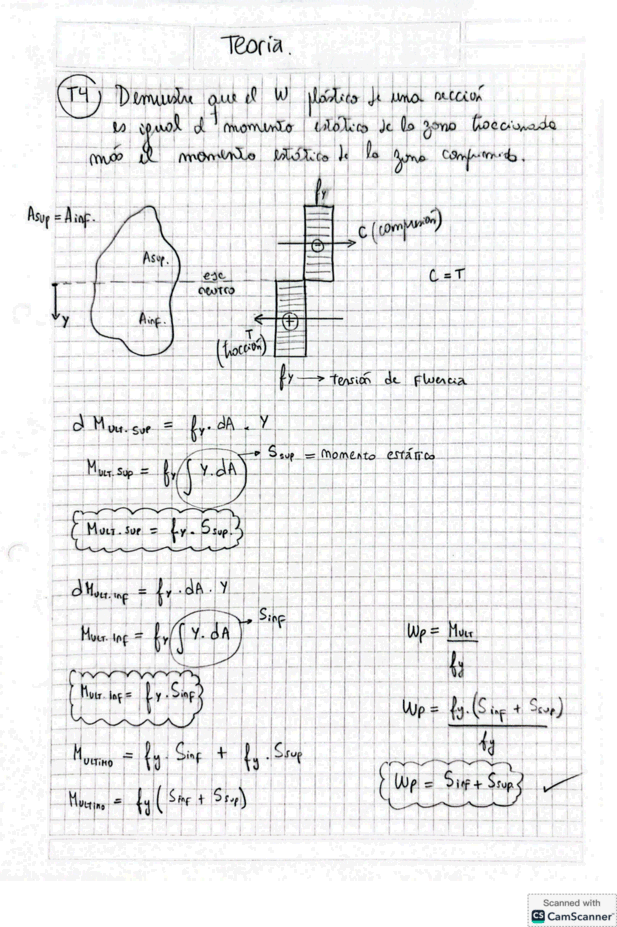 Teoria.
T4) Demuestre que el W plástico de una sección
es igual al momento estático de la zona traccionada
más el momento estático de la zona comprimida.
fy
Asup = Ainf.
C (compresión)
Asup.
C = T
eje
neutro
y
Ainf.
T
(tracción)
fy → tensión de Fluencia
d Mult. sup = fy . dA . Y
Mult. sup = fy ∫ Y. dA → Ssup = momento estático
Mult. sup = fy . Ssup.
d Mult. inf = fy . dA . Y
Mult. inf = fy ∫ Y. dA → Sinf
Wp = Mult / fy
Mult. inf = fy . Sinf
Wp = fy. (Sinf + Ssup) / fy
Multimo = fy . Sinf + fy . Ssup
Wp = Sinf + Ssup. ✓
Multimo = fy ( Sinf + Ssup)
Scanned with
CS CamScanner